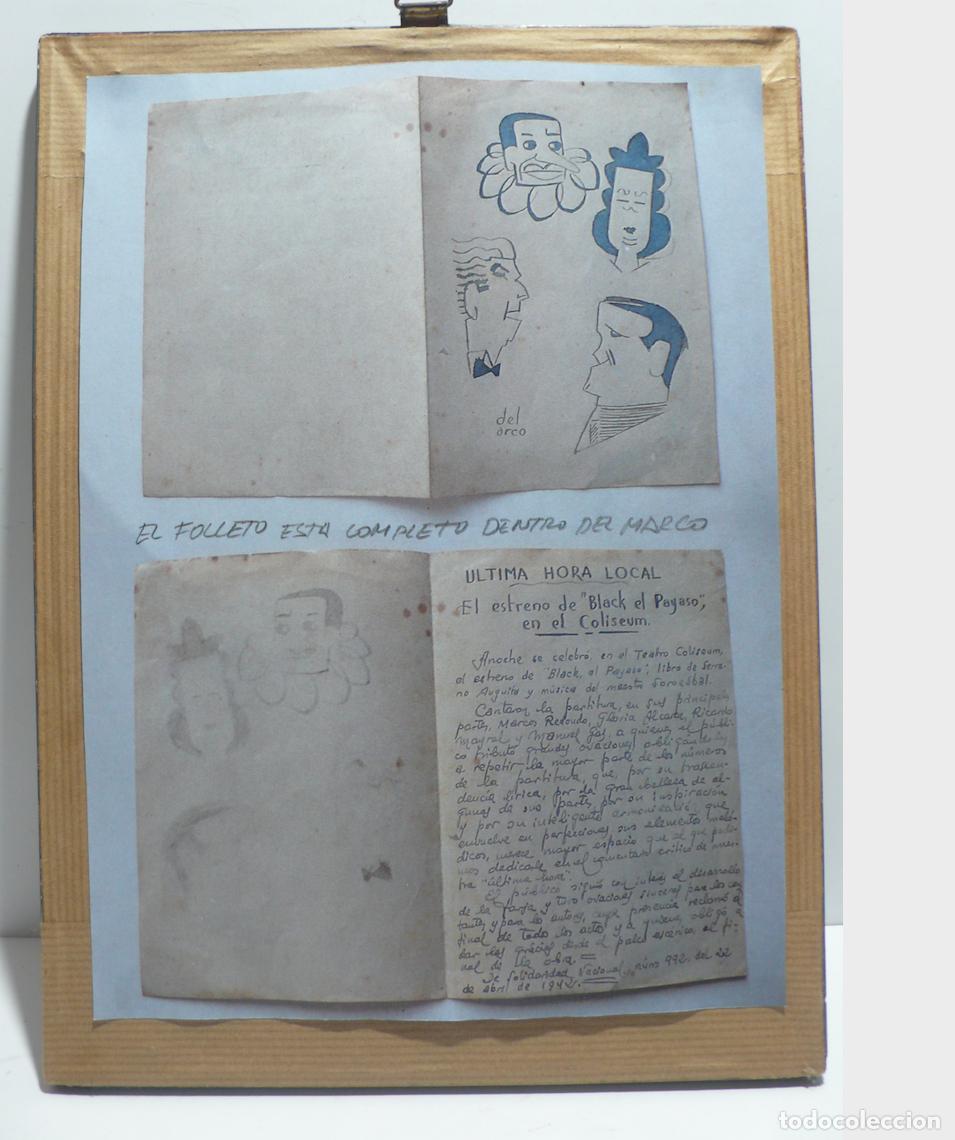 del
arco
EL FOLLETO ESTA COMPLETO DENTRO DEL MARCO
ULTIMA HORA LOCAL
El estreno de "Black el Payaso",
en el Coliseum.
Anoche se celebró, en el Teatro Coliseum,
el estreno de "Black, el Payaso", libro de Serra-
no Anguita y música del maestro Sorozábal.
Cantaron la partitura, en sus principales
partes, Marcos Redondo, Gloria Alcaraz, Ricardo
Mayral y Manuel Gas, a quienes el públi-
co tributó grandes ovaciones obligándoles
a repetir la mayor parte de los números
de la partitura, que, por su trascen-
dencia lírica, por la gran belleza de al-
gunas de sus partes, por su inspiración
y por su inteligente armonización, que
envuelve en perfecciones sus elementos meló-
dicos, merece mayor espacio que el que pode-
mos dedicarle en el comentario crítico de nues-
tra "última hora".
El público siguió con interés el desarrollo
de la farsa y tuvo ovaciones sinceras para los can-
tantes y para los autores, cuya presencia reclamó al
final de todos los actos y a quienes obligó a
dar las gracias desde el palco escénico al fi-
nal de la obra.=
De Solidaridad Nacional, núm 992. del 22
de abril de 1942.=
todocoleccion